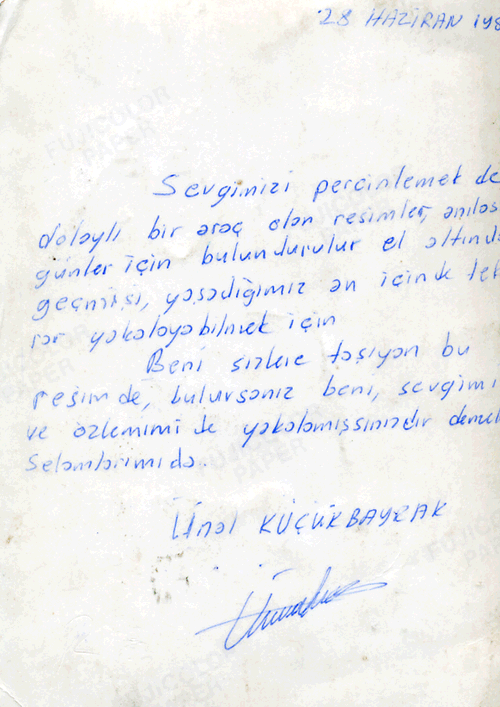 28 HAZİRAN 198
Sevgimizi perçinlemek de
dolaylı bir araç olan resimler, anılas
günler için bulundurulur el altında
geçmişi, yaşadığımız an içinde tek
rar yakalayabilmek için
Beni sizlere taşıyan bu
resimde, bulursanız beni, sevgimi
ve özlemimi de yakalamışsınızdır demek
Selamlarımıda.
Ünal KÜÇÜKBAYRAK
FUJICOLOR
PAPER